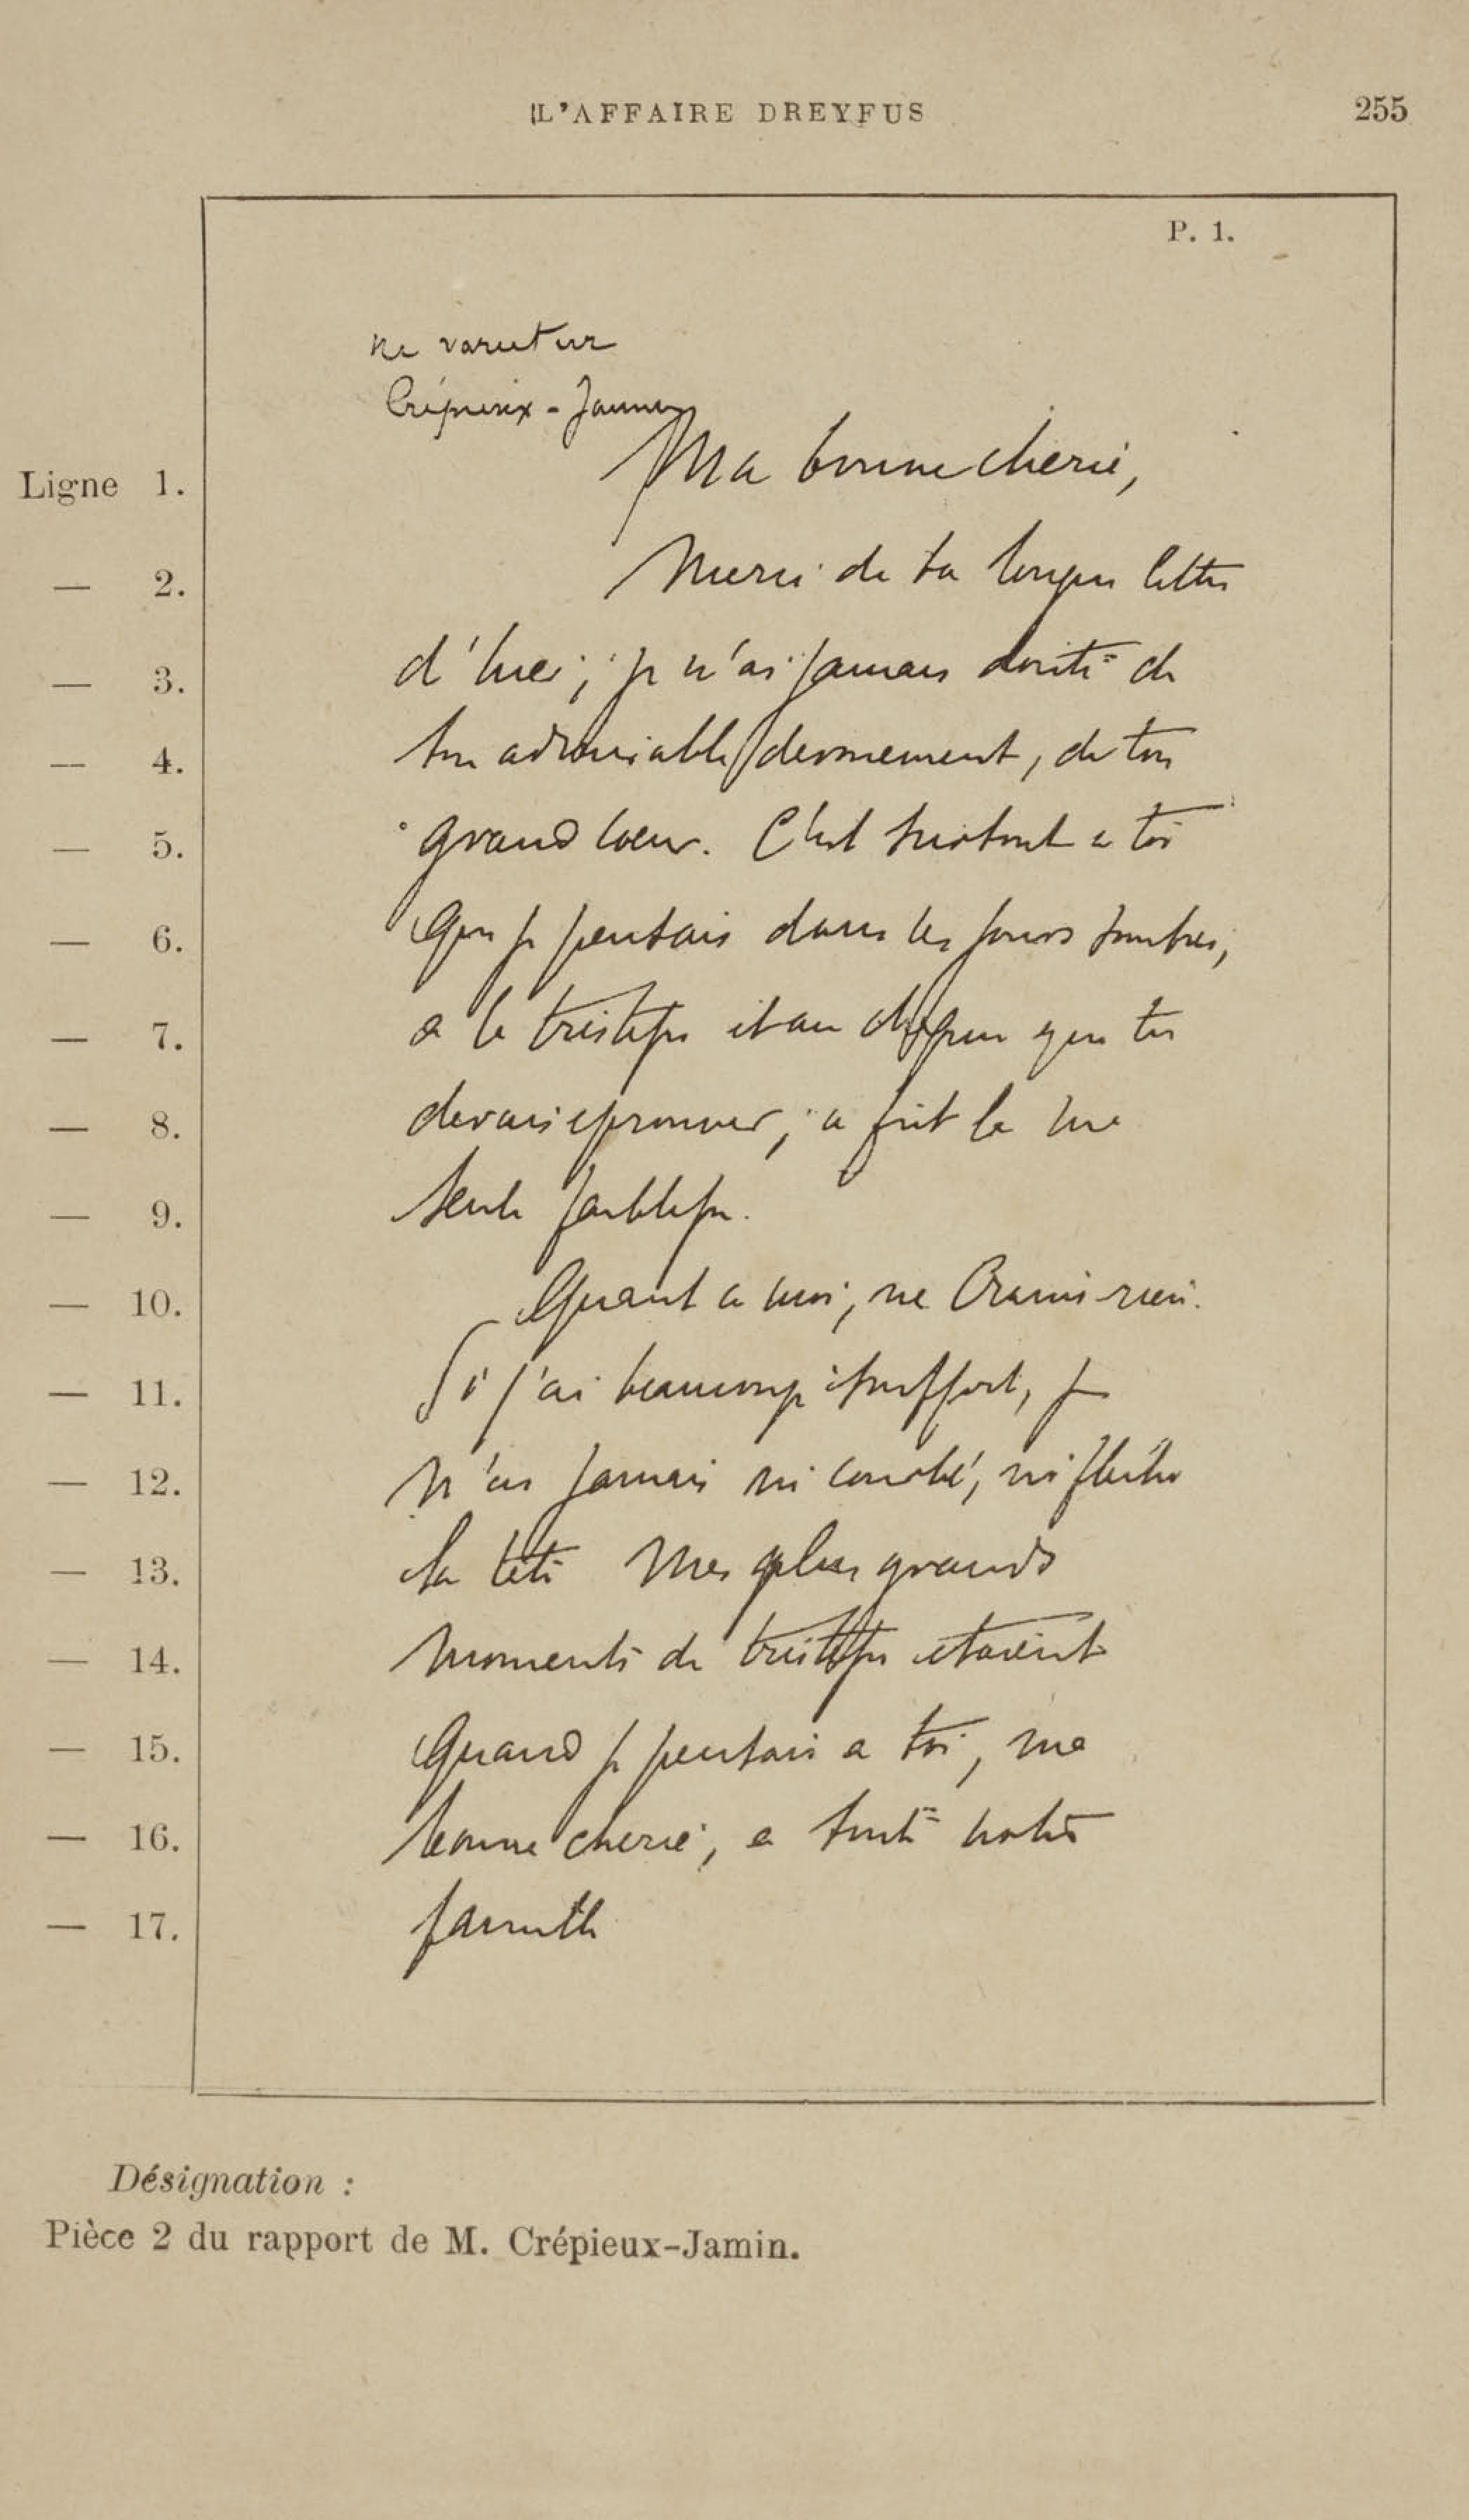 L'AFFAIRE DREYFUS 255
P. 1.
ne varietur
Crépieux-Jamin
Ligne 1. Ma bonne chérie,
— 2. Merci de ta longue lettre
— 3. d'hier; je n'ai jamais douté de
— 4. ton admirable dévouement, de ton
— 5. grand cœur. C'est surtout à toi
— 6. que je pensais dans les jours sombres,
— 7. à la tristesse et au chagrin que tu
— 8. devais éprouver; ce fut là ma
— 9. seule faiblesse.
— 10. Quant à moi, ne crains rien.
— 11. Si j'ai beaucoup souffert, je
— 12. n'ai jamais ni courbé, ni fléchi
— 13. la tête Mes plus grands
— 14. moments de tristesse étaient
— 15. Quand je pensais à toi, ma
— 16. bonne chérie, à toute notre
— 17. famille
Désignation :
Pièce 2 du rapport de M. Crépieux-Jamin.